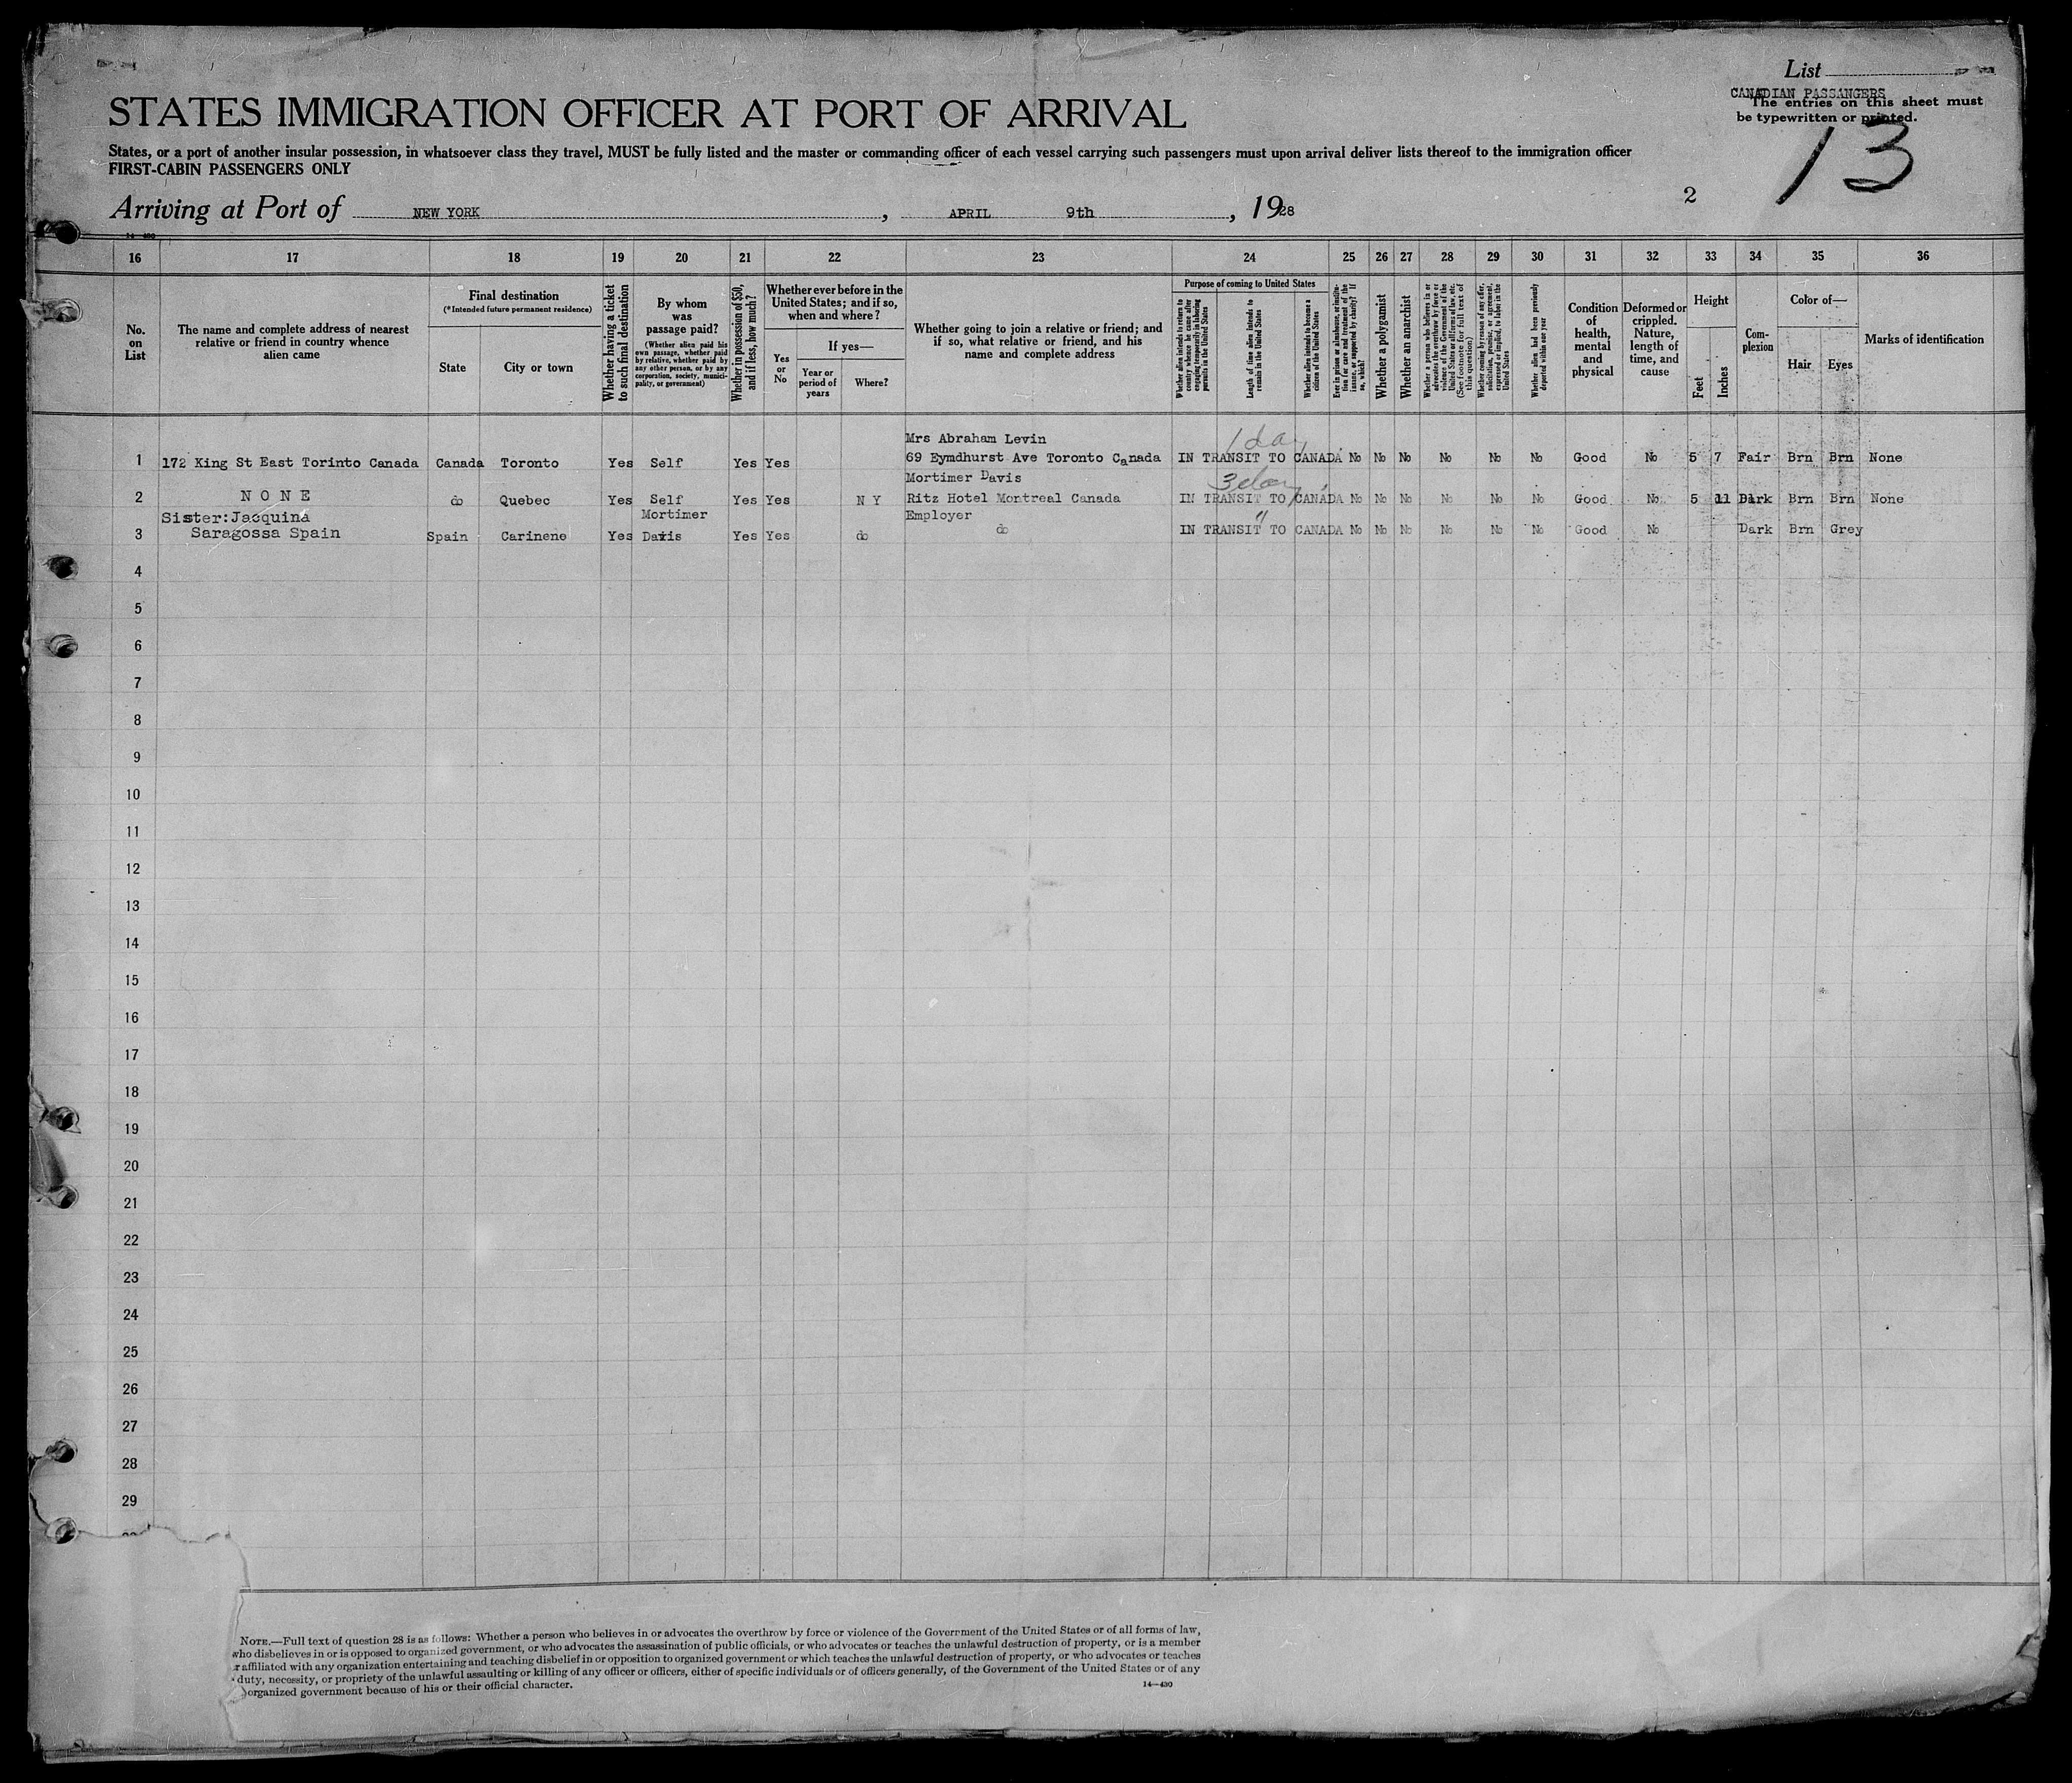 List
CANADIAN PASSANGERS
The entries on this sheet must
be typewritten or printed.
13
STATES IMMIGRATION OFFICER AT PORT OF ARRIVAL
States, or a port of another insular possession, in whatsoever class they travel, MUST be fully listed and the master or commanding officer of each vessel carrying such passengers must upon arrival deliver lists thereof to the immigration officer
FIRST-CABIN PASSENGERS ONLY
2
Arriving at Port of NEW YORK, APRIL 9th, 1928
14-430
16 17 18 19 20 21 22 23 24 25 26 27 28 29 30 31 32 33 34 35 36
No. on List
The name and complete address of nearest relative or friend in country whence alien came
Final destination
(*Intended future permanent residence)
State
City or town
Whether having a ticket to such final destination
By whom was passage paid?
(Whether alien paid his own passage, whether paid by relative, whether paid by any other person, or by any corporation, society, municipality, or government)
Whether in possession of $50, and if less, how much?
Whether ever before in the United States; and if so, when and where?
Yes or No
If yes—
Year or period of years
Where?
Whether going to join a relative or friend; and if so, what relative or friend, and his name and complete address
Purpose of coming to United States
Whether alien intends to return to country whence he came after engaging temporarily in laboring pursuits in the United States
Length of time alien intends to remain in the United States
Whether alien intends to become a citizen of the United States
Ever in prison or almshouse, or institution for care and treatment of the insane, or supported by charity? If so, which?
Whether a polygamist
Whether an anarchist
Whether a person who believes in or advocates the overthrow by force or violence of the Government of the United States or all forms of law, etc. (See footnote for full text of this question)
Whether coming by reason of any offer, solicitation, promise, or agreement, expressed or implied, to labor in the United States
Whether alien had been previously deported within one year
Condition of health, mental and physical
Deformed or crippled. Nature, length of time, and cause
Height
Feet
Inches
Complexion
Color of—
Hair
Eyes
Marks of identification
Mrs Abraham Levin
1 day
1 172 King St East Torinto Canada Canada Toronto Yes Self Yes Yes 69 Eymdhurst Ave Toronto Canada IN TRANSIT TO CANADA No No No No No No Good No 5 7 Fair Brn Brn None
Mortimer Davis
3 day
2 N O N E do Quebec Yes Self Yes Yes N Y Ritz Hotel Montreal Canada IN TRANSIT TO CANADA No No No No No No Good No 5 11 Dark Brn Brn None
Sister:Jacquina Mortimer Employer "
3 Saragossa Spain Spain Carinene Yes Davis Yes Yes do do IN TRANSIT TO CANADA No No No No No No Good No Dark Brn Grey
4
5
6
7
8
9
10
11
12
13
14
15
16
17
18
19
20
21
22
23
24
25
26
27
28
29
NOTE.—Full text of question 28 is as follows: Whether a person who believes in or advocates the overthrow by force or violence of the Government of the United States or of all forms of law,
who disbelieves in or is opposed to organized government, or who advocates the assassination of public officials, or who advocates or teaches the unlawful destruction of property, or is a member
r affiliated with any organization entertaining and teaching disbelief in or opposition to organized government or which teaches the unlawful destruction of property, or who advocates or teaches
duty, necessity, or propriety of the unlawful assaulting or killing of any officer or officers, either of specific individuals or of officers generally, of the Government of the United States or of any
organized government because of his or their official character.
14—430